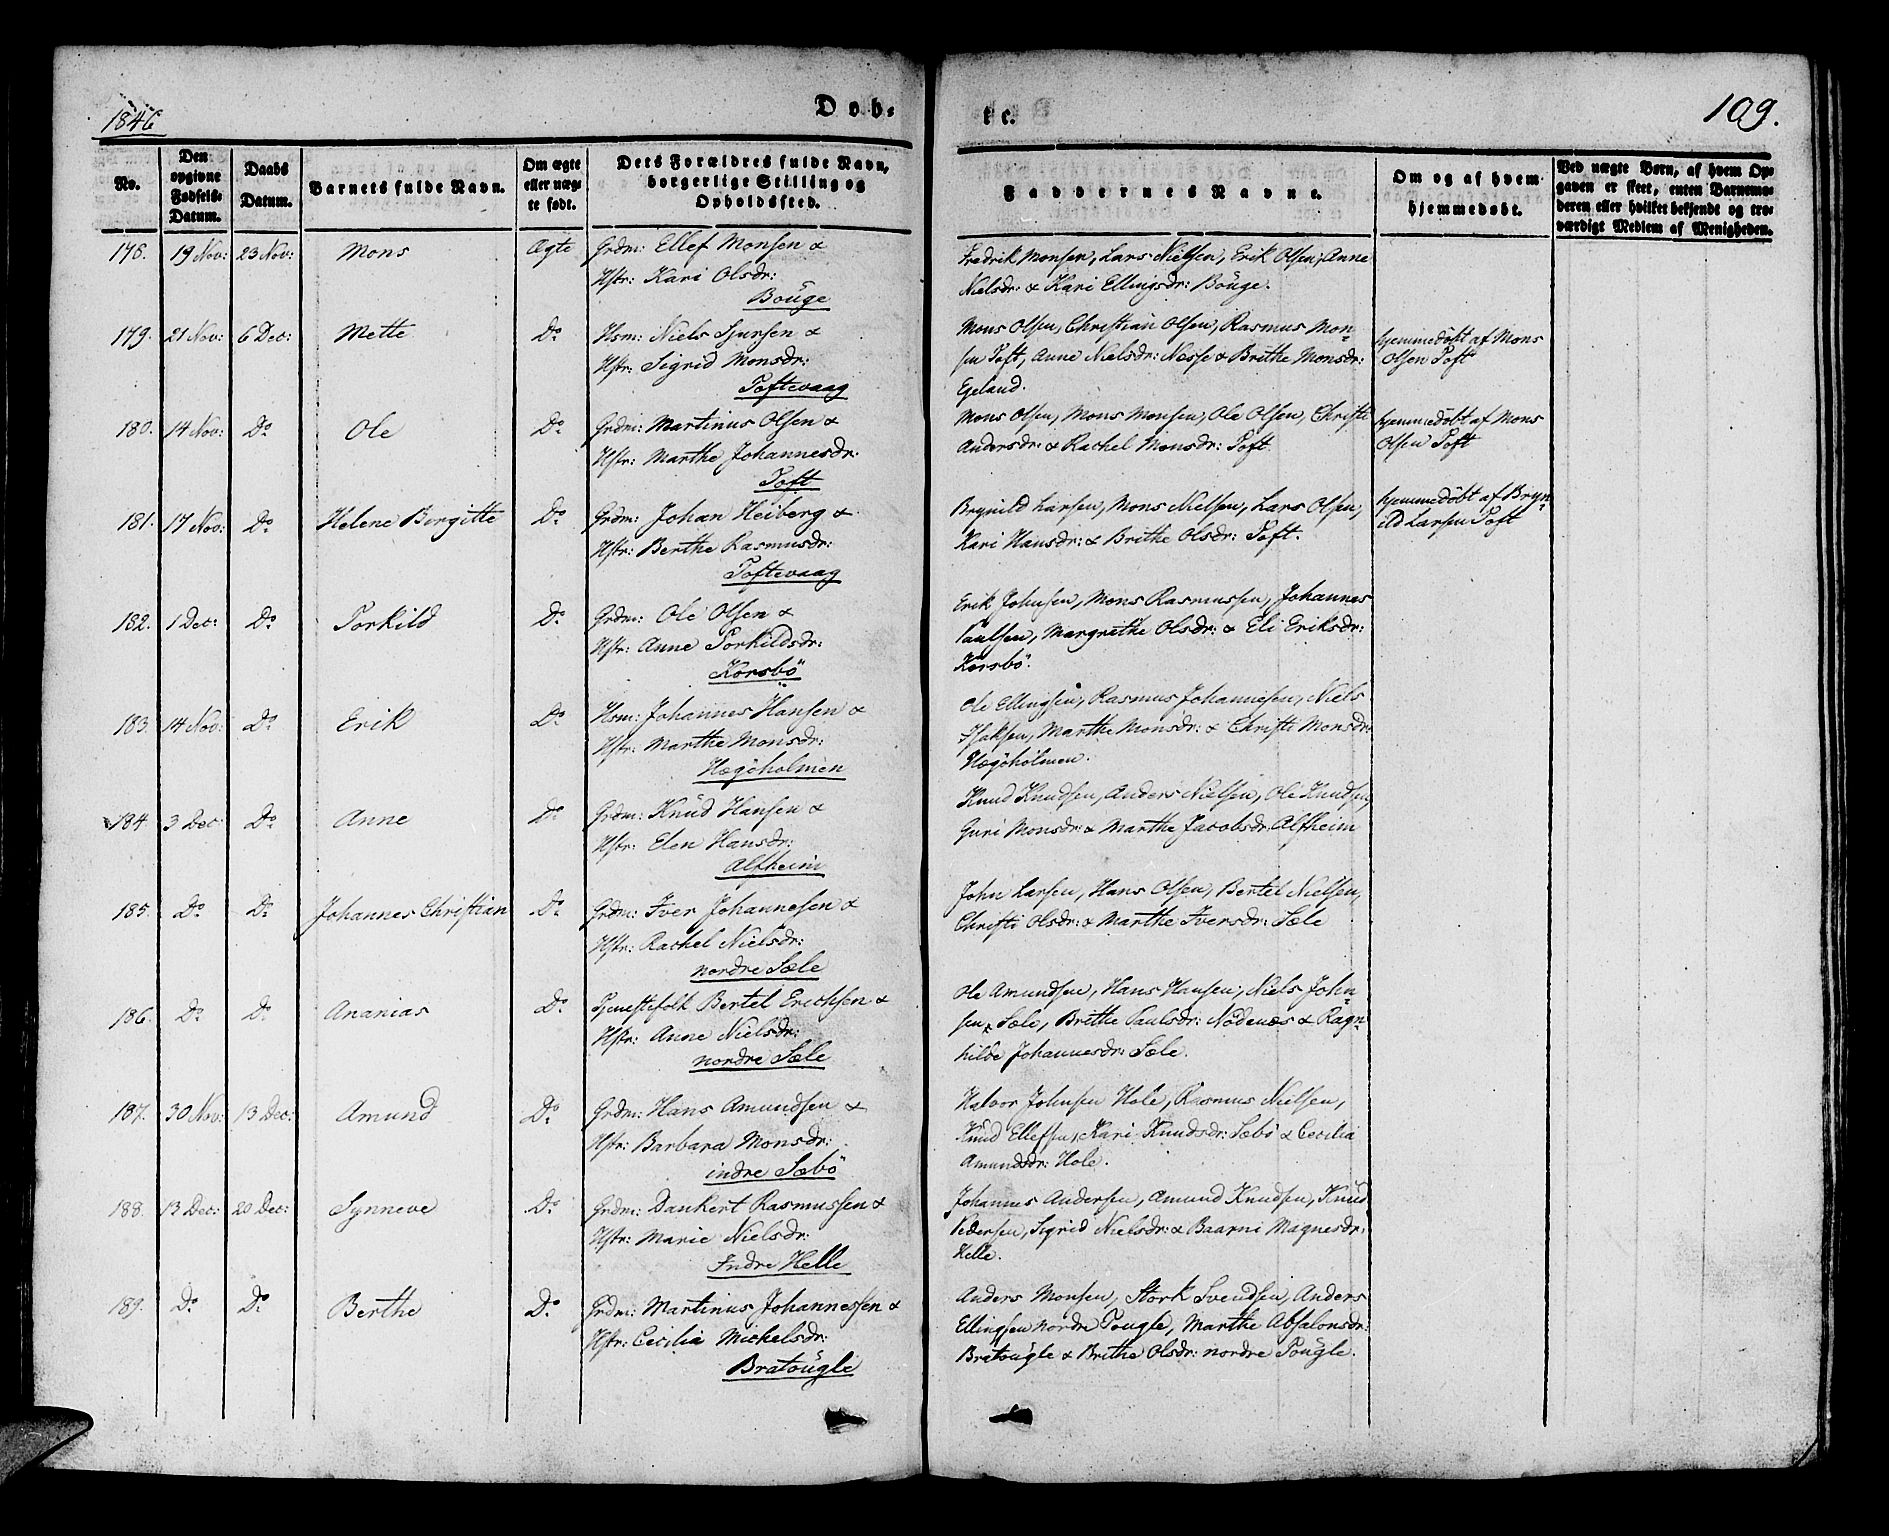 1846
Døb-
te.
109.
No.
Den opgivne Fødsels-Datum.
Daabs Datum.
Barnets fulde Navn.
Om ægte eller uæg-te født.
Dets Forældres fulde Navn, borgerlige Stilling og Opholdssted.
Faddernes Navne.
Om og af hvem hjemmedøbt.
Ved uægte Børn, af hvem Op-
gaven er skeet, enten Barnemo-
deren eller hvilket bekjendt og tro-
værdigt Medlem af Menigheden.
178. 19 Nov: 23 Nov: Mons Ægte Grdm: Ellef Monsen &
Hstr: Kari Olsdr:
Bouge
Fredrik Monsen, Lars Nielsen, Erik Olsen, Anne
Nielsdr: & Kari Ellingsdr: Bouge.
179. 21 Nov: 6 Dec: Mette Do. Hsm: Niels Sjursen &
Hstr: Sigrid Monsdr:
Toftevaag
Mons Olsen, Christian Olsen, Rasmus Mon-
sen Toft, Anne Nielsdr: Nesse & Brithe Monsdr:
Egeland.
hjemmedöbt af Mons
Olsen Toft
180. 14 Nov: Do. Ole Do. Grdm: Martinus Olsen &
Hstr: Marthe Johannesdr.
Toft
Mons Olsen, Mons Monsen, Ole Olsen, Christi
Andersdr: & Rachel Monsdr: Toft.
hjemmedöbt af Mons
Olsen Toft
181. 17 Nov: Do. Helene Bergitte Do. Grdm: Johan Heiberg &
Hstr: Berthe Rasmusdr:
Toftevaag
Brynild Larsen, Mons Nielsen, Lars Olsen,
Kari Hansdr: & Brithe Olsdr: Toft.
hjemmedöbt af Bryn-
ild Larsen Toft
182. 1 Dec: Do. Torkild Do. Grdm: Ole Olsen &
Hstr: Anne Torkildsdr:
Korsbö
Erik Johnsen, Mons Rasmussen, Johannes
Paulsen, Margrethe Olsdr: & Eli Eriksdr:
Korsbö.
183. 14 Nov: Do. Erik Do. Hsm: Johannes Hansen &
Hstr: Marthe Monsdr:
Hægöholmen
Ole Ellingsen, Rasmus Johannesen, Niels
Isaksen, Marthe Monsdr: & Christi Monsdr:
Hægöholmen.
184. 3 Dec: Do. Anne Do. Grdm: Knud Hansen &
Hstr: Elen Hansdr:
Alfheim
Knud Knudsen, Anders Nielsen, Ole Knudsen,
Guri Monsdr: & Marthe Jacobsdr. Alfheim
185. Do. Do. Johannes Christian Do. Grdm: Iver Johannesen &
Hstr: Rachel Nielsdr:
nordre Sæle
John Larsen, Hans Olsen, Bertel Nielsen,
Christi Olsdr: & Marthe Iversdr: Sæle
186. Do. Do. Ananias Do. Tjenestefolk Bertel Erichsen &
Hstr: Anne Nielsdr:
nordre Sæle
Ole Amundsen, Hans Hansen, Niels John-
sen, Sæle, Brithe Paulsdr: Nödenæs & Ragn-
hilde Johannesdr: Sæle.
187. 30 Nov: 13 Dec: Amund Do. Grdm: Hans Amundsen &
Hstr: Barbara Monsdr:
indre Sæbö
Halvor Johnsen Hole, Rasmus Nielsen,
Knud Ellefsen, Kari Knudsdr: Sæbö & Cecilia
Amundsdr: Hole.
188. 13 Dec: 20 Dec: Synneve Do. Grdm: Dankert Rasmussen &
Hstr: Marie Nielsdr:
Indre Helle
Johannes Andersen, Amund Knudsen, Knud
Pedersen, Sigrid Nielsdr: & Baarni Magnesdr:
Helle.
189. Do. Do. Berthe Do. Grdm: Martinus Johannessen &
Hstr: Cecilia Mickelsdr:
Bratougle
Anders Monsen, Stork Svendsen, Anders
Ellingsen nordre Tougle, Marthe Absalonsdr:
Bratougle & Brithe Olsdr: nordre Tougle.